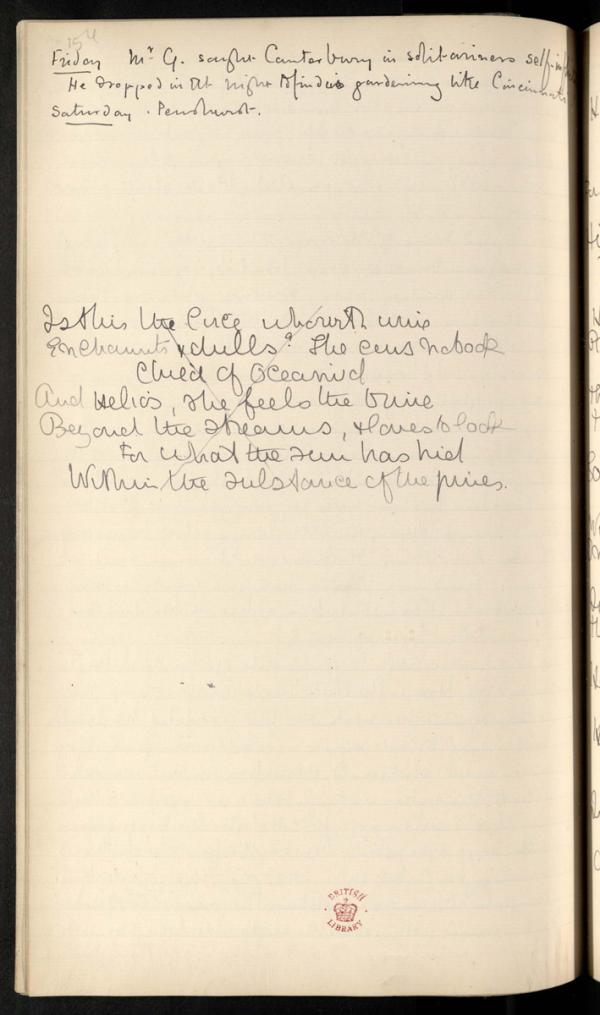 154
Friday Mr G. sought Canterbury in solitariness
He dropped in at night gardening like
Saturday . Penshurst.
Is this the Circe who with wine
Enchaunts & dulls? She cons no book
Child of Oceanid
And Helios, she feels the brine
Beyond the streams, & loves to look
For what the sun has hid
Within the substance of the pines.
BRITISH
LIBRARY